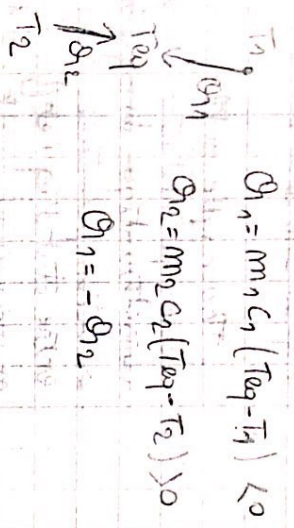 T₁
Q₁
Teq
Q₂
T₂
Q₁ = m₁ c₁ (Teq - T₁) < 0
Q₂ = m₂ c₂ (Teq - T₂) > 0
Q₁ = - Q₂